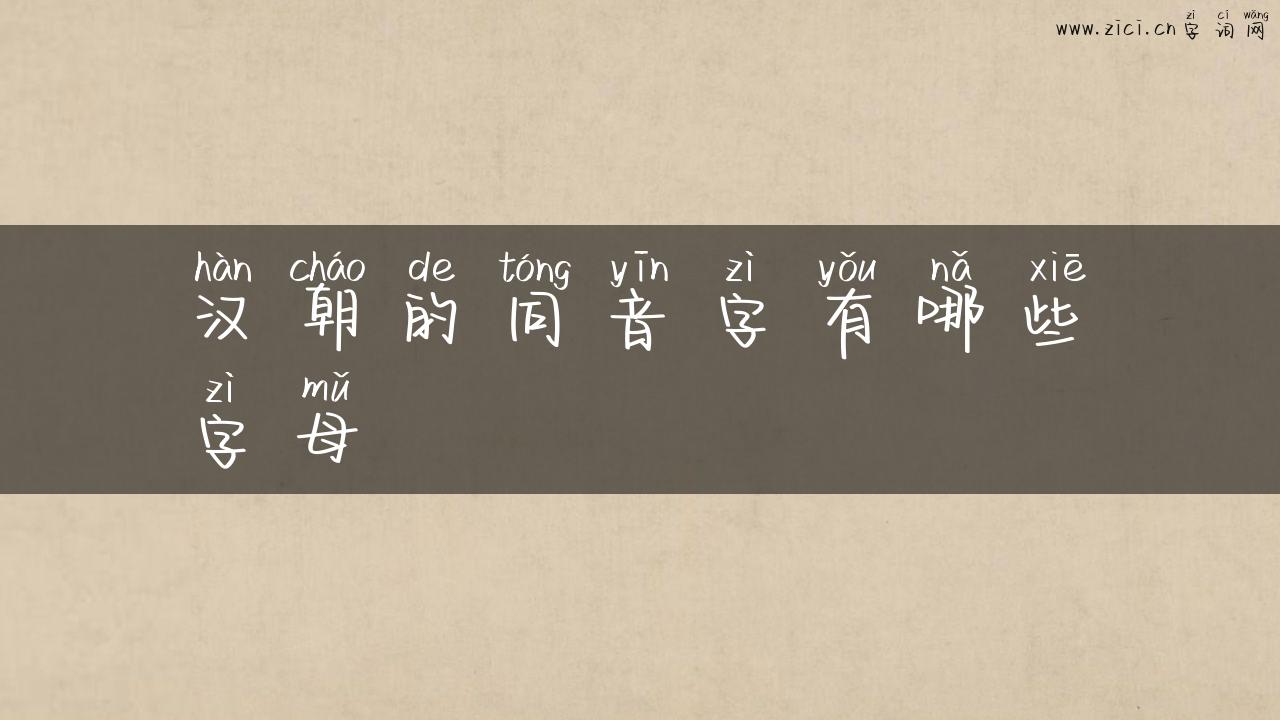 zì cí wǎng
www.zici.cn 字词网
hàn cháo de tóng yīn zì yǒu nǎ xiē
汉朝的同音字有哪些
zì mǔ
字母